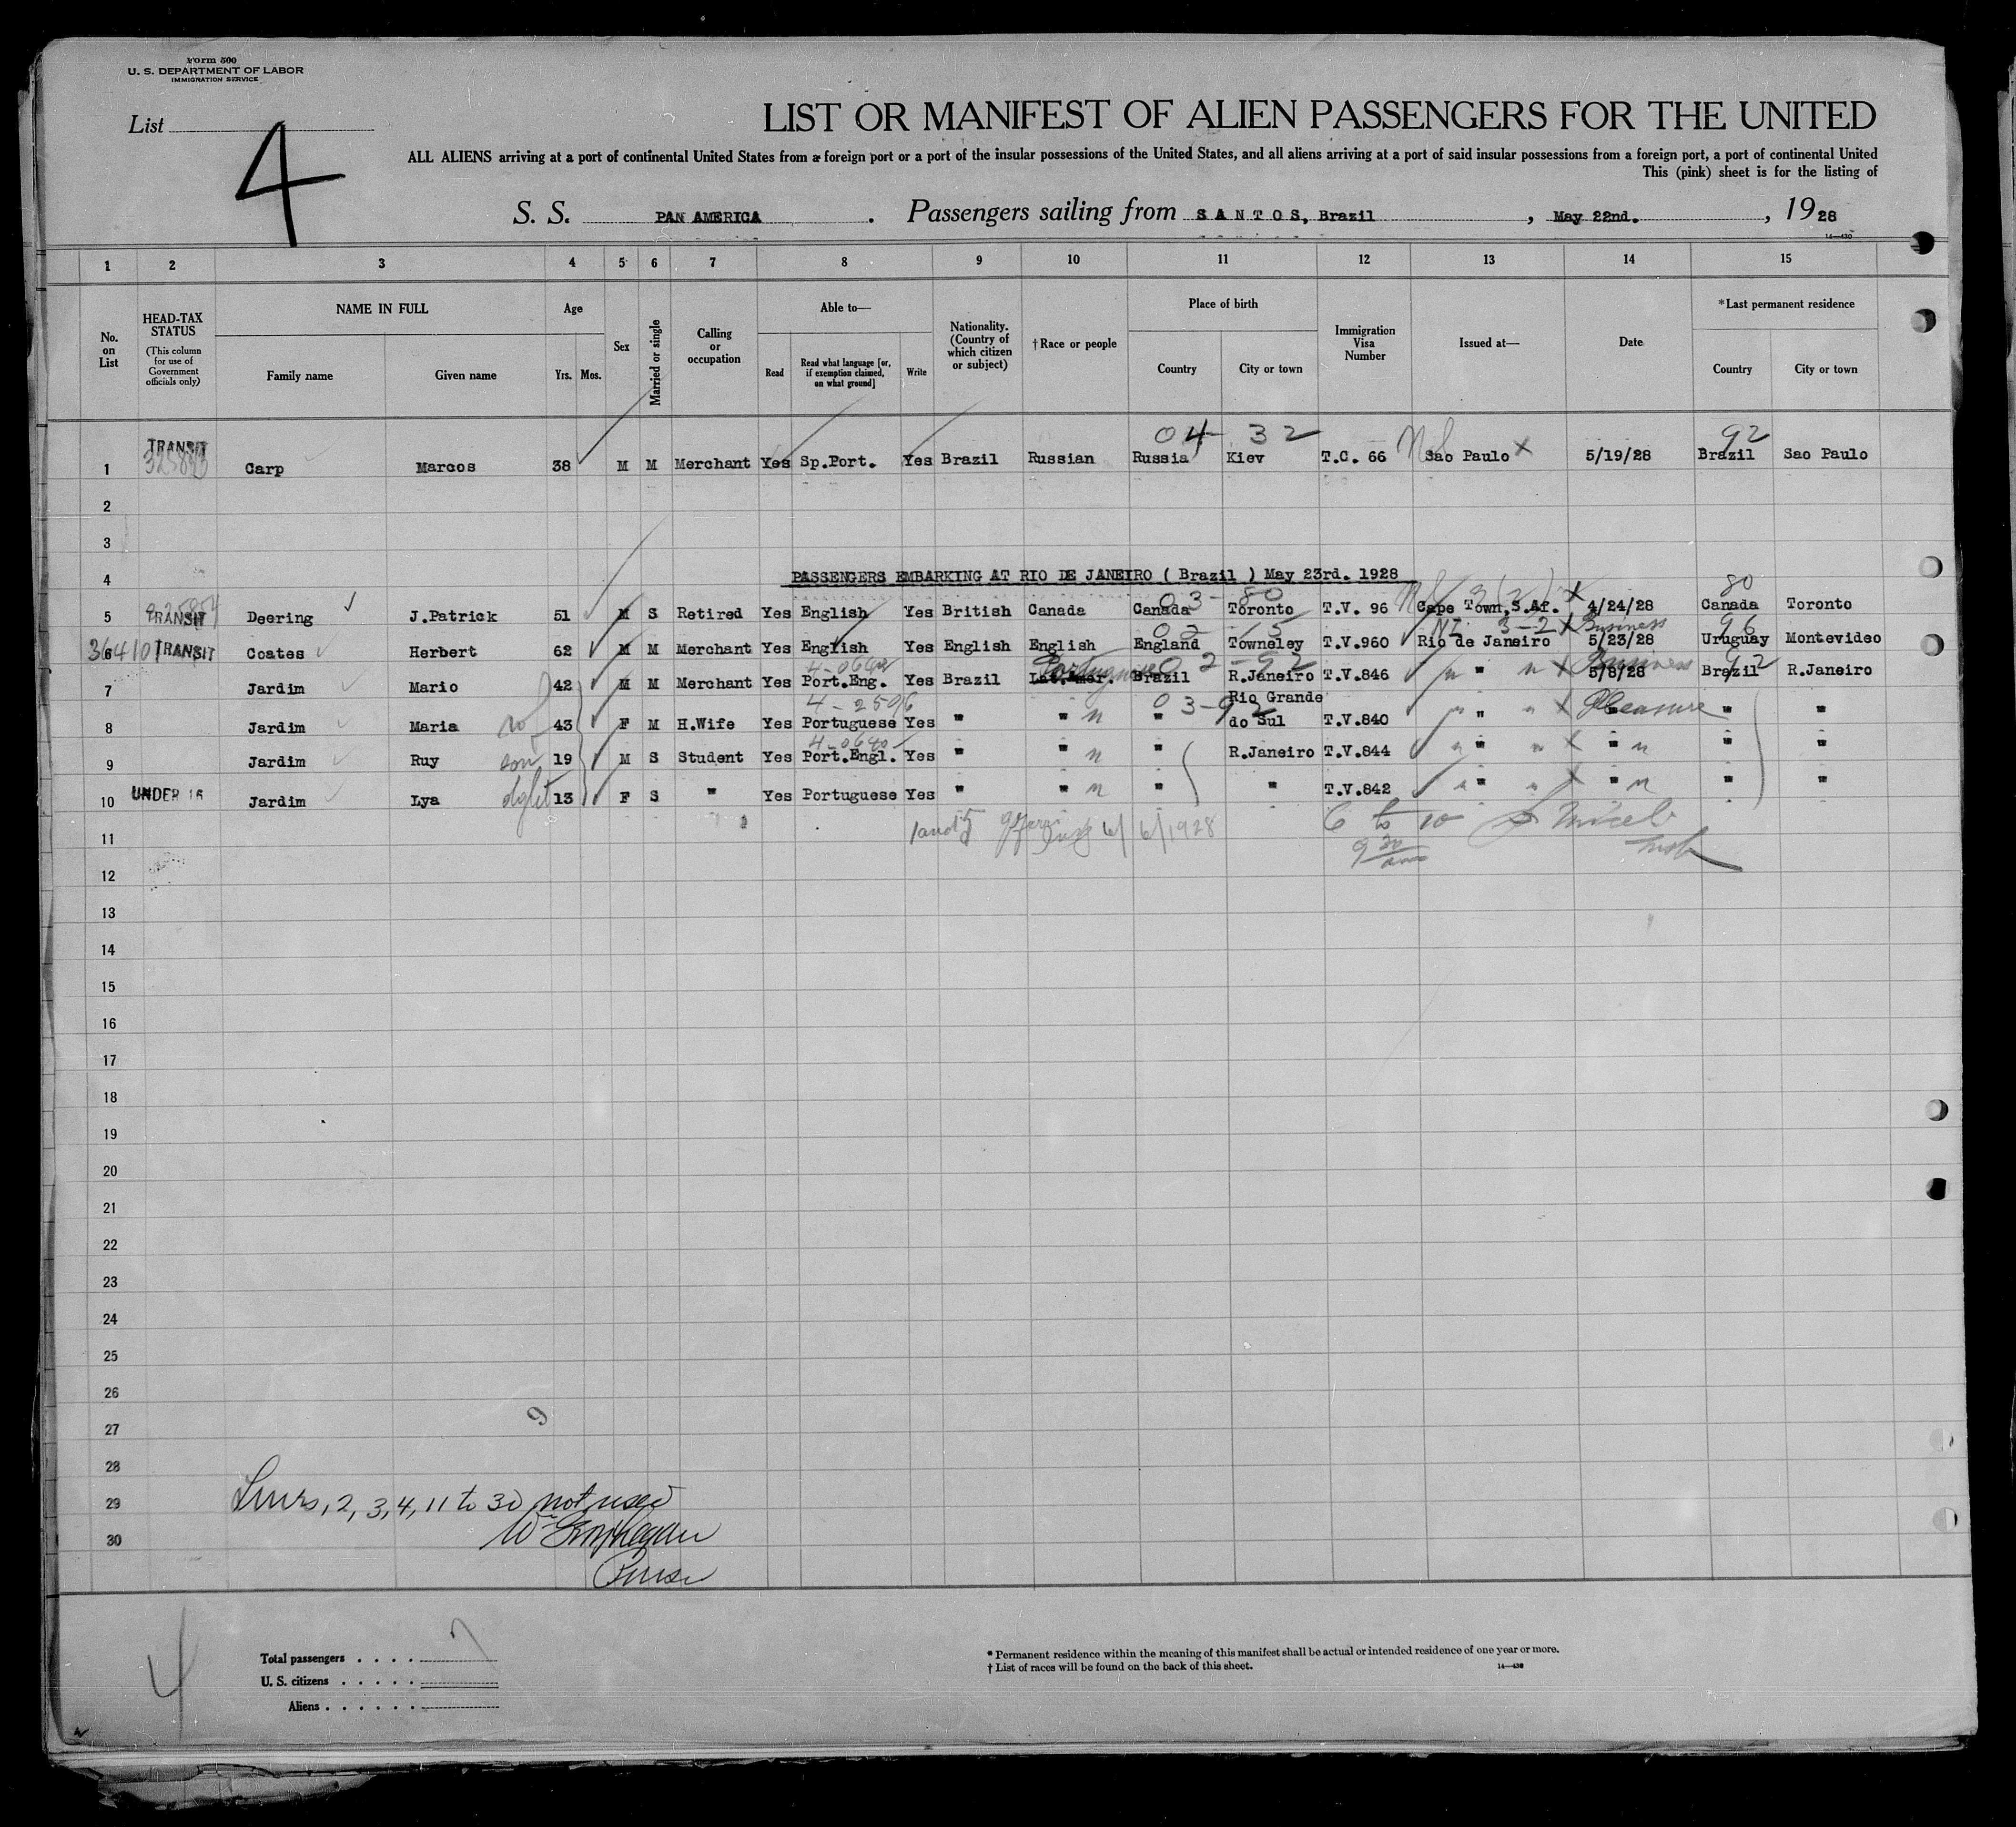 Form 500
U. S. DEPARTMENT OF LABOR
IMMIGRATION SERVICE
List
4
LIST OR MANIFEST OF ALIEN PASSENGERS FOR THE UNITED
ALL ALIENS arriving at a port of continental United States from a foreign port or a port of the insular possessions of the United States, and all aliens arriving at a port of said insular possessions from a foreign port, a port of continental United
This (pink) sheet is for the listing of
S. S. PAN AMERICA . Passengers sailing from SANTOS, Brazil , May 22nd. , 1928
14—430
1 2 3 4 5 6 7 8 9 10 11 12 13 14 15
No. on List
HEAD-TAX STATUS
(This column for use of Government officials only)
NAME IN FULL
Family name Given name
Age
Yrs. Mos.
Sex
Married or single
Calling or occupation
Able to—
Read
Read what language [or, if exemption claimed, on what ground]
Write
Nationality. (Country of which citizen or subject)
†Race or people
Place of birth
Country City or town
Immigration Visa Number
Issued at—
Date
*Last permanent residence
Country City or town
04 32 92
1 TRANSIT Carp Marcos 38 M M Merchant Yes Sp.Port. Yes Brazil Russian Russia Kiev T.C. 66 Sao Paulo X 5/19/28 Brazil Sao Paulo
2
3
4 PASSENGERS EMBARKING AT RIO DE JANEIRO ( Brazil ) May 23rd. 1928
03-80 3(2) X 80
5 TRANSIT Deering J.Patrick 51 M S Retired Yes English Yes British Canada Canada Toronto T.V. 96 Cape Town,S.Af. 4/24/28 Canada Toronto
02-15 3-2 X Business 96
6 36410 TRANSIT Coates Herbert 62 M M Merchant Yes English Yes English English England Towneley T.V.960 Rio de Janeiro 5/23/28 Uruguay Montevideo
Portuguese 02-92 Business 92
7 Jardim Mario 42 M M Merchant Yes Port.Eng. Yes Brazil Brazil R.Janeiro T.V.846 " " X 5/8/28 Brazil R.Janeiro
4-2596 03-92 Rio Grande
8 Jardim Maria wf 43 F M H.Wife Yes Portuguese Yes " " " do Sul T.V.840 " " X Pleasure " "
4-0640
9 Jardim Ruy son 19 M S Student Yes Port.Engl. Yes " " " R.Janeiro T.V.844 " " X " " "
10 UNDER 16 Jardim Lya dght 13 F S " Yes Portuguese Yes " " " " T.V.842 " " X " " "
11 6/6/1928 6 to 10
9 30 am
12
13
14
15
16
17
18
19
20
21
22
23
24
25
26
27
9
28
29 Lines, 2, 3, 4, 11 to 30 not used
30
Purser
4
Total passengers . . . . 7
U. S. citizens . . . . .
Aliens . . . . . .
* Permanent residence within the meaning of this manifest shall be actual or intended residence of one year or more.
† List of races will be found on the back of this sheet.
14—430